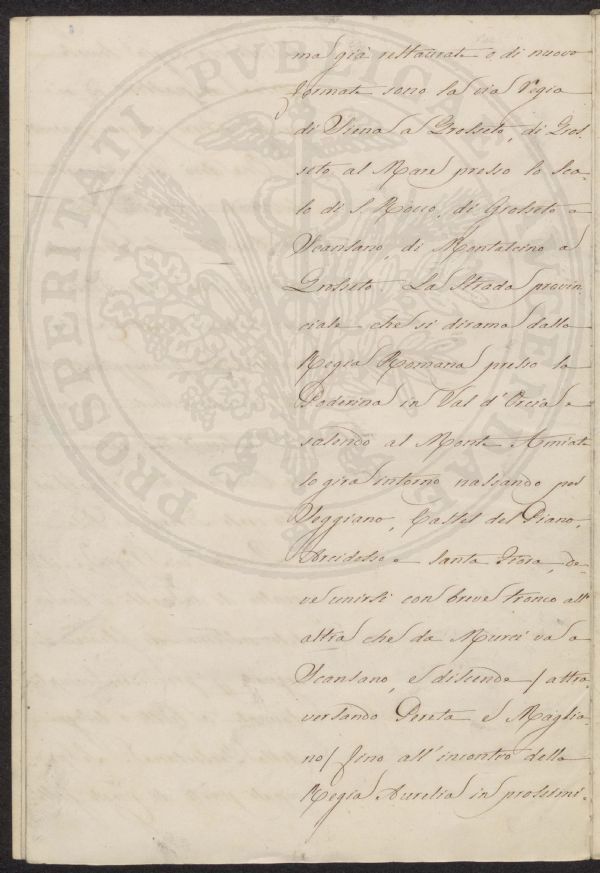 ma già restaurate o di nuovo
formate sono la via Regia
di Siena a Grosseto, di Gros-
seto al Mare presso lo Sca-
lo di S. Rocco, di Grosseto a
Scansano, di Montalcino a
Grosseto. La Strada provin-
ciale che si dirama dalla
Regia Romana presso la
Poderina in Val d'Orcia e
salendo al Monte Amiata
lo gira intorno passando per
Seggiano, Castel del Piano,
Arcidosso e Santa Fiora, de-
ve unirsi con breve tronco all'
altra che da Murci va a
Scansano, e discende / attra
versando Pereta e Maglia-
no / fino all'incontro della
Regia Aurelia in prossimi-
PROSPERITATI PVBLICAE